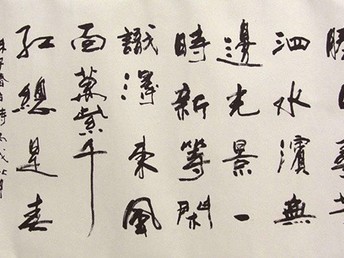 勝日尋芳
泗水濱無
邊光景一
時新等閑
識得東風
面萬紫千
紅總是春
朱子春日詩